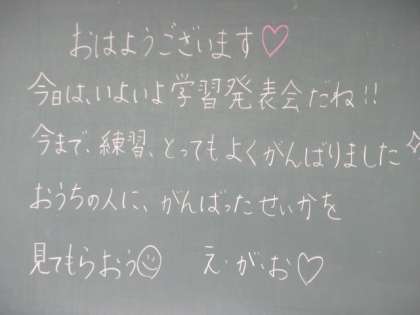 おはようございます♡
今日は、いよいよ学習発表会だね!!
今まで、練習、とってもよくがんばりました✧
おうちの人に、がんばったせいかを
見てもらおう☺ え・が・お♡